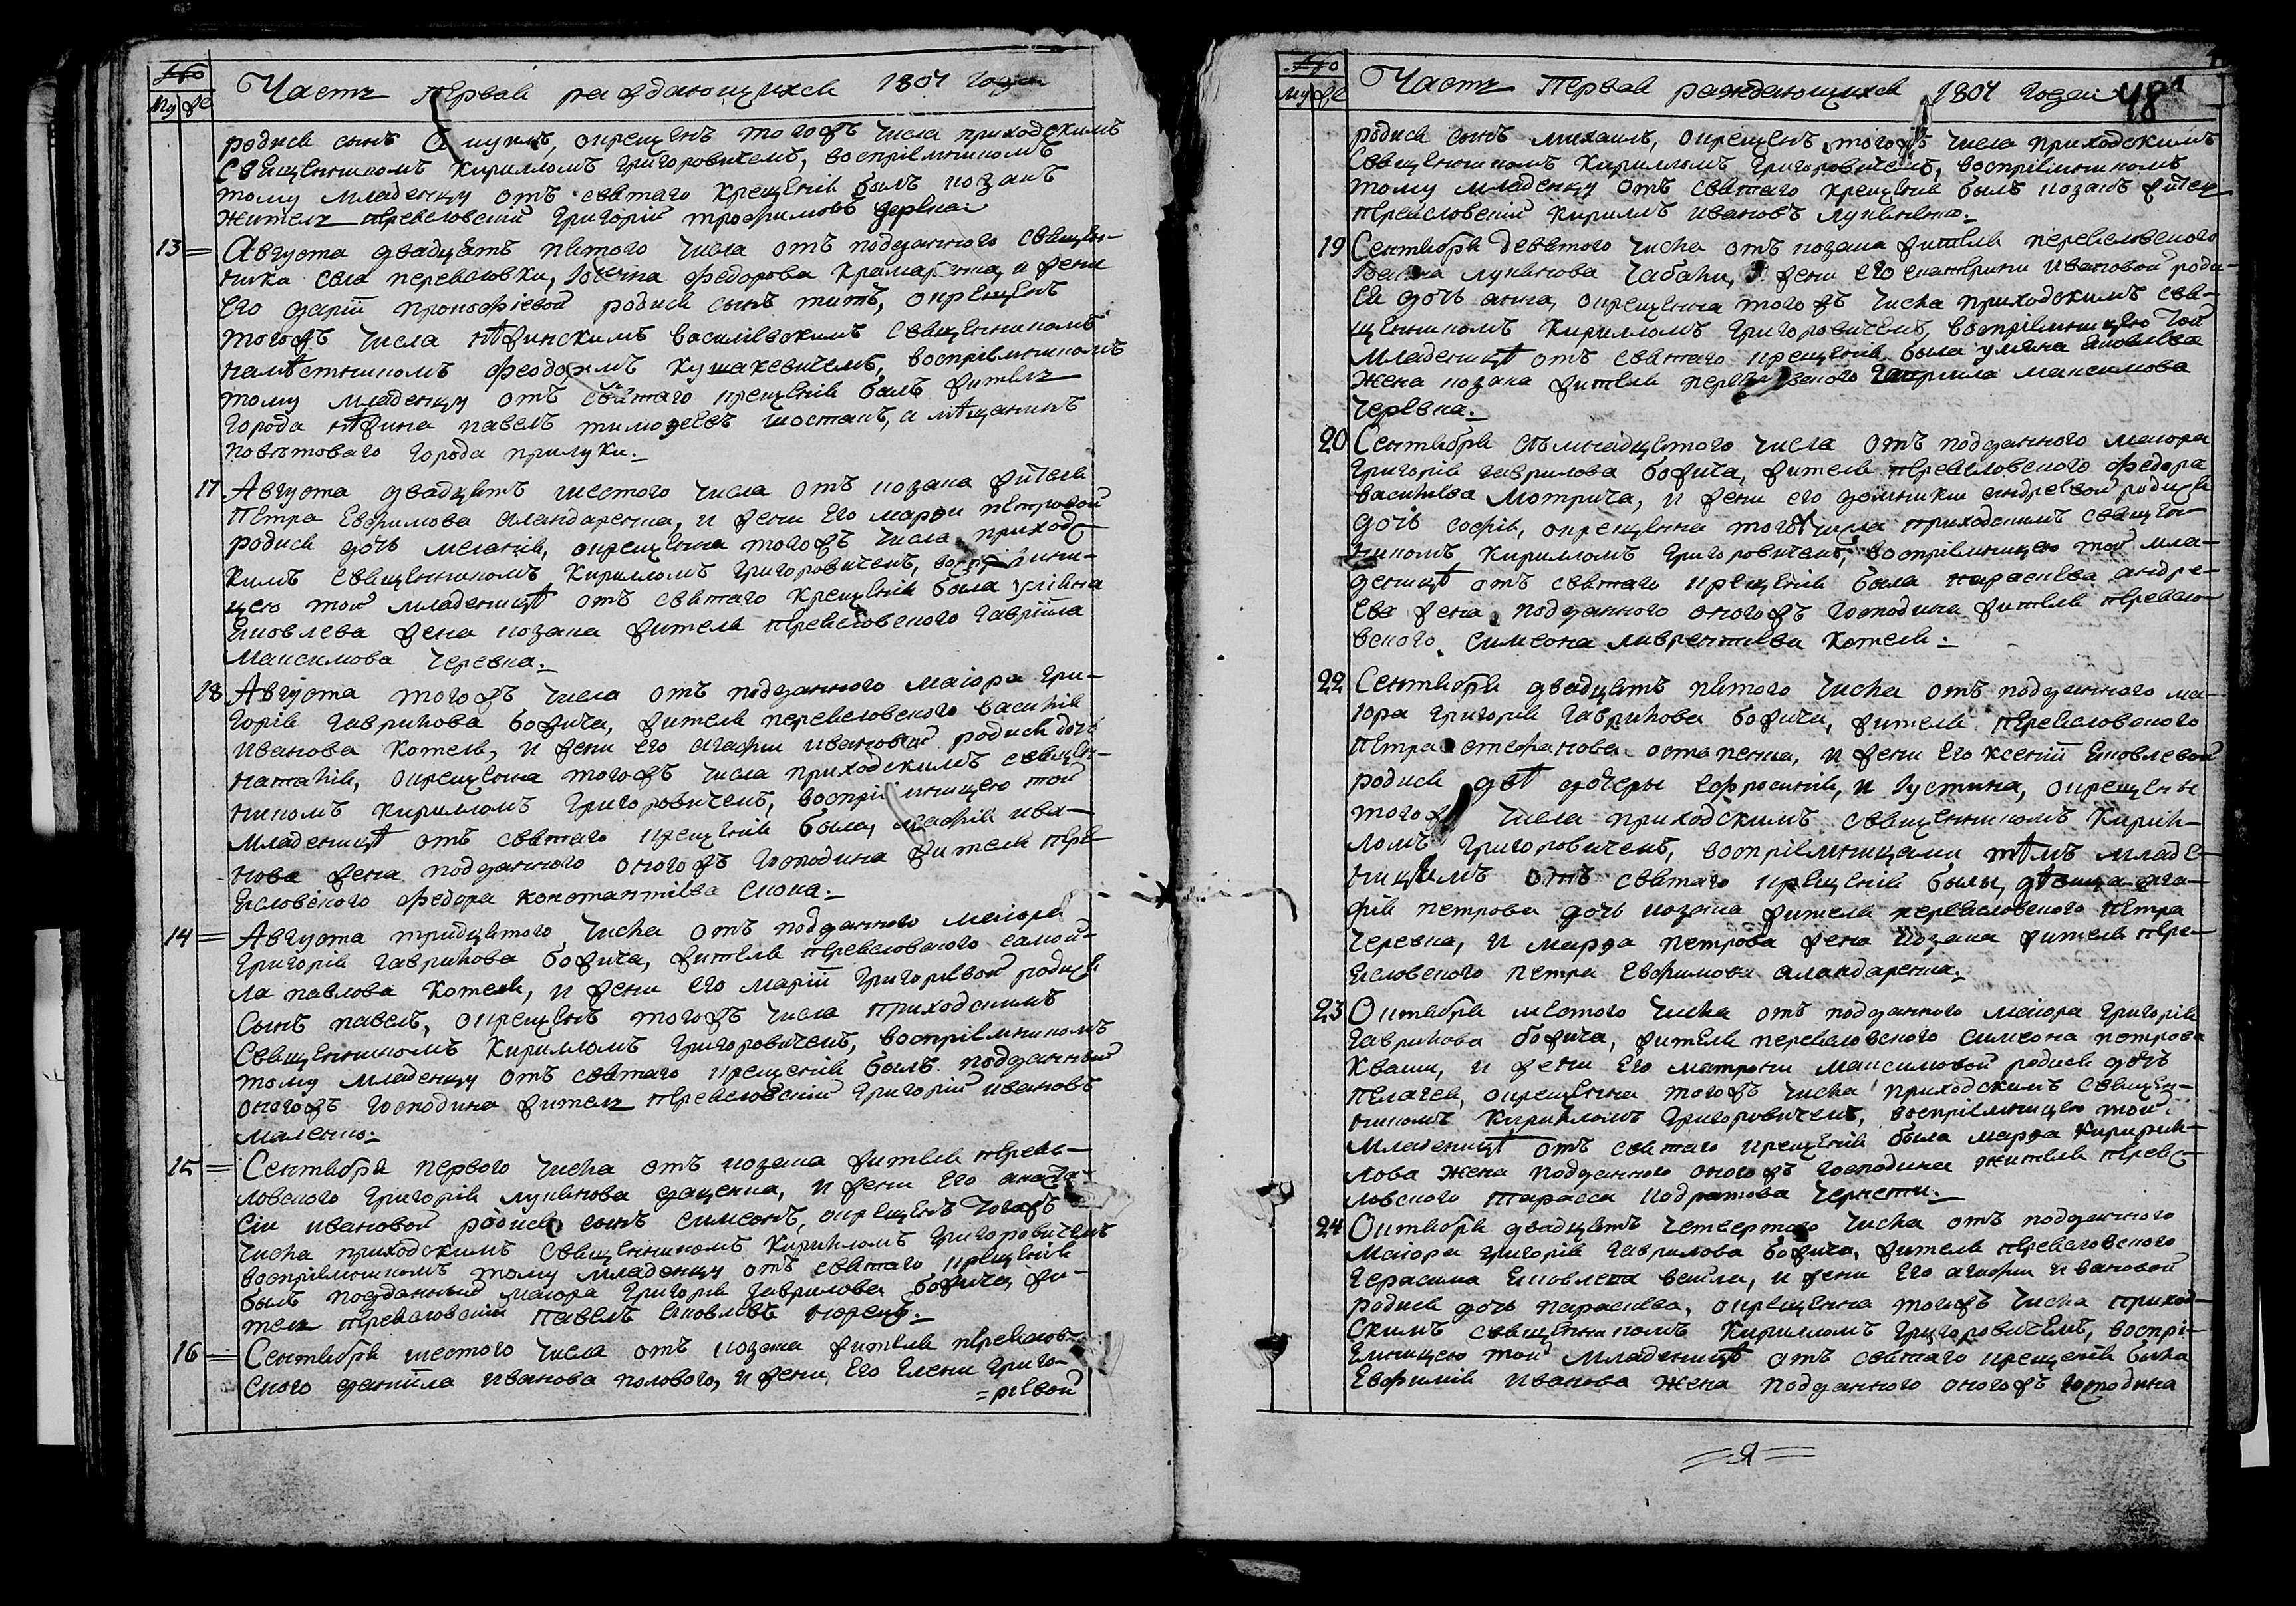 №
Му Же
Часть первая раждающихся 1804 года
родися сынъ окрещенъ тогожъ числа приходскимъ
священникомъ Кирилломъ Григоровичемъ, воспріемникомъ
тому младенцу отъ святаго крещенія былъ козакъ
житель переясловскій Григорій трофимовъ
13 = Августа двадцять пятого числа отъ подданного священ-
ника села переясловки, федорова Крамаренка, и жени
его даріи прокофіевой родися сынъ титъ, окрещенъ
тогожъ числа нѣжинскимъ василіевскимъ священникомъ
намѣстникомъ феодоромъ Кушакевичемъ, воспріемникомъ
тому младенцу отъ святаго крещенія былъ житель
города нѣжина павелъ тимофеевъ шостакъ, а мѣщанинъ
повѣтоваго города прилуки.
17 Августа двадцять шестого числа отъ козака жителя
Петра Евфимова аландаренка, и жени его марфи петровой
родися дочь меланія, окрещенна тогожъ числа приход-
кимъ священникомъ Кирилломъ Григоровичемъ, воспріемни-
цею той младеницѣ отъ святаго крещенія была уліяна
Яковлева жена козака жителя переясловского гавріила
Максимова черевка.
18 Августа тогожъ числа отъ подданного маіора гри-
горія гаврилова божича, жителя переясловского василія
иванова Котеля, и жени его агафіи ивановой родися дочь
наталія, окрещенна тогожъ числа приходскимъ священ-
никомъ Кирилломъ Григоровичемъ, воспріемницею той
младеницѣ отъ святаго крещенія была, агафія ива-
нова жена подданного оногожъ господина жителя пере-
ясловского федора константіева скока.
14 = Августа тридцятого числа отъ подданного маіора
григорія гаврилова божича, жителя переясловского самой-
ла павлова Котеля, и жени его маріи григоріевой родися
сынъ павелъ, окрещенъ тогожъ числа приходскимъ
священникомъ Кирилломъ Григоровичемъ, воспріемникомъ
тому младенцу отъ святаго крещенія былъ подданный
оногожъ господина житель переясловскій григорій ивановъ
маленко.
15 = Сентября первого числа отъ козака жителя переяс-
ловского григорія лукянова даценка, и жени его анаста-
сіи ивановой родися сынъ симеонъ, окрещенъ тогожъ
числа приходскимъ священникомъ Кирилломъ Григоровичемъ
воспріемникомъ тому младенцу отъ святаго крещенія
былъ подданный маіора григорія гаврилова божича, жи-
тель переясловскій павелъ яковлевъ
16 = Сентября шестого числа отъ козака жителя переяслов-
ского даніила иванова полового, и жени его елени григо-
=ріевой
№
Му Же
Часть первая раждающихся 1804 года 48
родися сынъ михаилъ, окрещенъ тогожъ числа приходскимъ
священникомъ Кирилломъ Григоровичемъ, воспріемникомъ
тому младенцу отъ святаго крещенія былъ козакъ житель
переясловскій кирилъ ивановъ лукяненко.
19 Сентября девятого числа отъ козака жителя переясловского
лукянова чабана, и жени его екатерини ивановой роди-
ся дочь анна, окрещенна тогожъ числа приходскимъ свя-
щенникомъ Кирилломъ Григоровичемъ, воспріемницею той
младеницѣ отъ святаго крещенія была уляна яковлева
жена козака жителя переясловского гаврила максимова
черевка.
20 Сентября числа отъ подданного маіора
григорія гаврилова божича, жителя переясловского федора
василіева мотрича, и жени его домникіи андреевой родися
дочь софія, окрещенна тогожъ числа приходскимъ священ-
никомъ Кирилломъ Григоровичемъ, воспріемницею той мла-
деницѣ отъ святаго крещенія была параскева андре-
ева жена подданного оногожъ господина жителя переясло-
вского симеона лаврентіева Котеля.
22 Сентября двадцять пятого числа отъ подданного ма-
іора григорія гаврилова божича, жителя переясловского
петра стефанова остапенка, и жени его ксеніи яковлевой
родися двѣ дочеры ефросинія, и іустина, окрещены
тогожъ числа приходскимъ священникомъ Кирил-
ломъ Григоровичемъ, воспріемницами тѣмъ младе-
ницямъ отъ святаго крещенія былы, дѣвица ага-
фія петрова дочь козака жителя переясловского петра
черевка, и марфа петрова жена козака жителя пере-
ясловского петра евфимова аландаренка.
23 Октября шестого числа отъ подданного маіора григорія
гаврилова божича, жителя переясловского симеона петрова
кваши, и жени его матрони максимовой родися дочь
пелагея, окрещенна тогожъ числа приходскимъ священ-
никомъ Кирилломъ Григоровичемъ, воспріемницею той
младеницѣ отъ святаго крещенія была марфа кирил-
лова жена подданного оногожъ господина жителя переяс-
ловского тарасса кодратова
24 Октября двадцять четвертого числа отъ подданного
маіора григорія гаврилова божича, жителя переясловского
герасима яковлева и жени его агафіи ивановой
родися дочь параскева, окрещенна тогожъ числа приход-
скимъ священникомъ Кирилломъ Григоровичемъ, воспрі-
емницею той младеницѣ отъ святаго крещенія была
евфимія иванова жена подданного оногожъ господина
=Я=